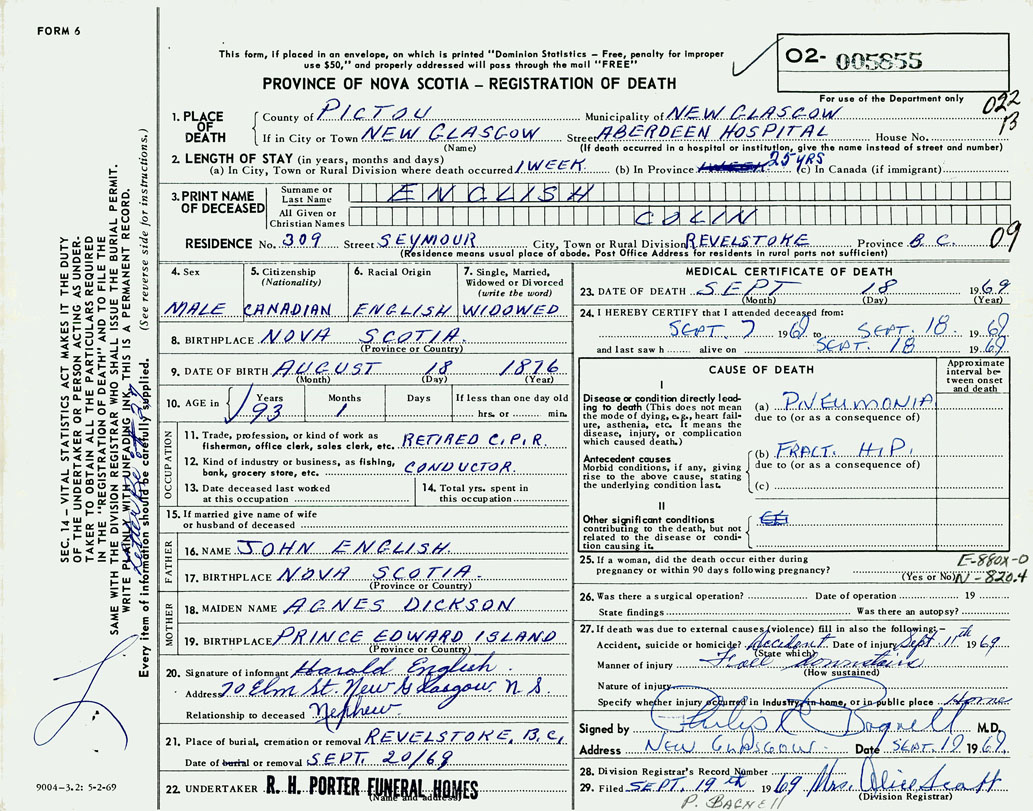 FORM 6
This form, if placed in an envelope, on which is printed "Dominion Statistics – Free, penalty for improper
use $50," and properly addressed will pass through the mail "FREE"
O2- 005855
PROVINCE OF NOVA SCOTIA – REGISTRATION OF DEATH
For use of the Department only
022
B
1. PLACE OF DEATH
County of PICTOU Municipality of NEW GLASGOW
If in City or Town NEW GLASGOW Street ABERDEEN HOSPITAL House No.
(Name) (If death occurred in a hospital or institution, give the name instead of street and number)
2. LENGTH OF STAY (in years, months and days)
(a) In City, Town or Rural Division where death occurred 1 WEEK (b) In Province 1 WEEK 25 YRS (c) In Canada (if immigrant)
3. PRINT NAME OF DECEASED
Surname or Last Name ENGLISH
All Given or Christian Names COLIN
RESIDENCE No. 309 Street SEYMOUR City, Town or Rural Division REVELSTOKE Province B.C. 09
(Residence means usual place of abode. Post Office Address for residents in rural parts not sufficient)
4. Sex
MALE
5. Citizenship
(Nationality)
CANADIAN
6. Racial Origin
ENGLISH
7. Single, Married,
Widowed or Divorced
(write the word)
WIDOWED
8. BIRTHPLACE NOVA SCOTIA
(Province or Country)
9. DATE OF BIRTH AUGUST 18 1876
(Month) (Day) (Year)
10. AGE in Years Months Days If less than one day old
93 1 hrs. or min.
OCCUPATION
11. Trade, profession, or kind of work as
fisherman, office clerk, sales clerk, etc. RETIRED C.P.R.
12. Kind of industry or business, as fishing,
bank, grocery store, etc. CONDUCTOR
13. Date deceased last worked
at this occupation
14. Total yrs. spent in
this occupation
15. If married give name of wife
or husband of deceased
FATHER
16. NAME JOHN ENGLISH
17. BIRTHPLACE NOVA SCOTIA.
(Province or Country)
MOTHER
18. MAIDEN NAME AGNES DICKSON
19. BIRTHPLACE PRINCE EDWARD ISLAND
(Province or Country)
20. Signature of informant Harold English.
Address 70 Elm St. New Glasgow N S.
Relationship to deceased Nephew.
21. Place of burial, cremation or removal REVELSTOKE, B.C.
Date of burial or removal SEPT. 20/69
22. UNDERTAKER R. H. PORTER FUNERAL HOMES
(Name and address)
MEDICAL CERTIFICATE OF DEATH
23. DATE OF DEATH SEPT 18 1969
(Month) (Day) (Year)
24. I HEREBY CERTIFY that I attended deceased from:
SEPT. 7 1969 to SEPT. 18. 1969
and last saw h alive on SEPT. 18 1969.
CAUSE OF DEATH
Approximate
interval be-
tween onset
and death
I
Disease or condition directly lead-
ing to death (This does not mean
the mode of dying, e.g., heart fail-
ure, asthenia, etc. It means the
disease, injury, or complication
which caused death.)
(a) PNEUMONIA
due to (or as a consequence of)
Antecedent causes
Morbid conditions, if any, giving
rise to the above cause, stating
the underlying condition last.
(b) FRACT. HIP.
due to (or as a consequence of)
(c)
II
Other significant conditions
contributing to the death, but not
related to the disease or condi-
tion causing it.
25. If a woman, did the death occur either during
pregnancy or within 90 days following pregnancy?
(Yes or No)
E-880X-0
N-820.4
26. Was there a surgical operation? Date of operation 19
State findings Was there an autopsy?
27. If death was due to external causes (violence) fill in also the following:–
Accident, suicide or homicide? Accident Date of injury Sept 11th 1969
(State which)
Manner of injury Fall downstairs
(How sustained)
Nature of injury
Specify whether injury occurred in Industry, in home, or in public place Home
Signed by Philip Bagnell M.D.
Address NEW GLASGOW. Date SEPT. 19 1969.
28. Division Registrar's Record Number
29. Filed SEPT. 19th 1969 Mrs. Alice Scott
(Division Registrar)
P. BAGNELL
SEC. 14 – VITAL STATISTICS ACT MAKES IT THE DUTY
OF THE UNDERTAKER OR PERSON ACTING AS UNDER-
TAKER TO OBTAIN ALL THE PARTICULARS REQUIRED
IN THE "REGISTRATION OF DEATH" AND TO FILE THE
SAME WITH THE DIVISION REGISTRAR WHO SHALL ISSUE THE BURIAL PERMIT.
WRITE PLAINLY WITH UNFADING INK. THIS IS A PERMANENT RECORD.
Every item of information should be carefully supplied. (See reverse side for instructions.)
9004-3.2: 5-2-69